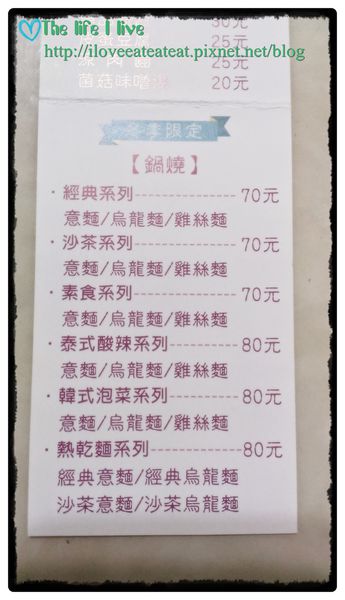 The life I live
http://iloveeateateat.pixnet.net/blog
30元
25元
25元
菌菇味噌湯 20元
冬季限定
【鍋燒】
·經典系列--------------- 70元
意麵/烏龍麵/雞絲麵
·沙茶系列--------------- 70元
意麵/烏龍麵/雞絲麵
·素食系列--------------- 70元
意麵/烏龍麵/雞絲麵
·泰式酸辣系列----------- 80元
意麵/烏龍麵/雞絲麵
·韓式泡菜系列----------- 80元
意麵/烏龍麵/雞絲麵
·熱乾麵系列------------- 80元
經典意麵/經典烏龍麵
沙茶意麵/沙茶烏龍麵